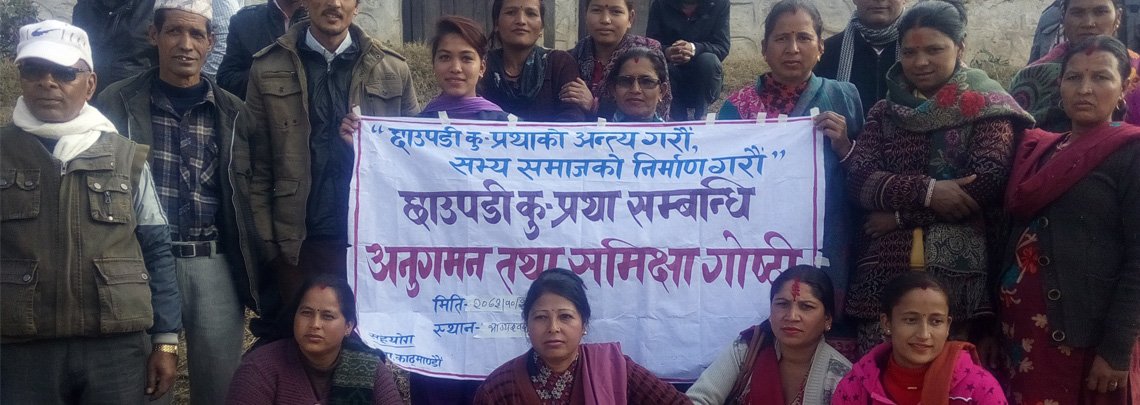 "छाउपडी कु-प्रथाको अन्त्य गरौं,
सभ्य समाजको निर्माण गरौं"
छाउपडी कु-प्रथा सम्बन्धि
अनुगमन तथा समिक्षा गोष्ठी
मिति:-
स्थान:-
काठमाण्डौं